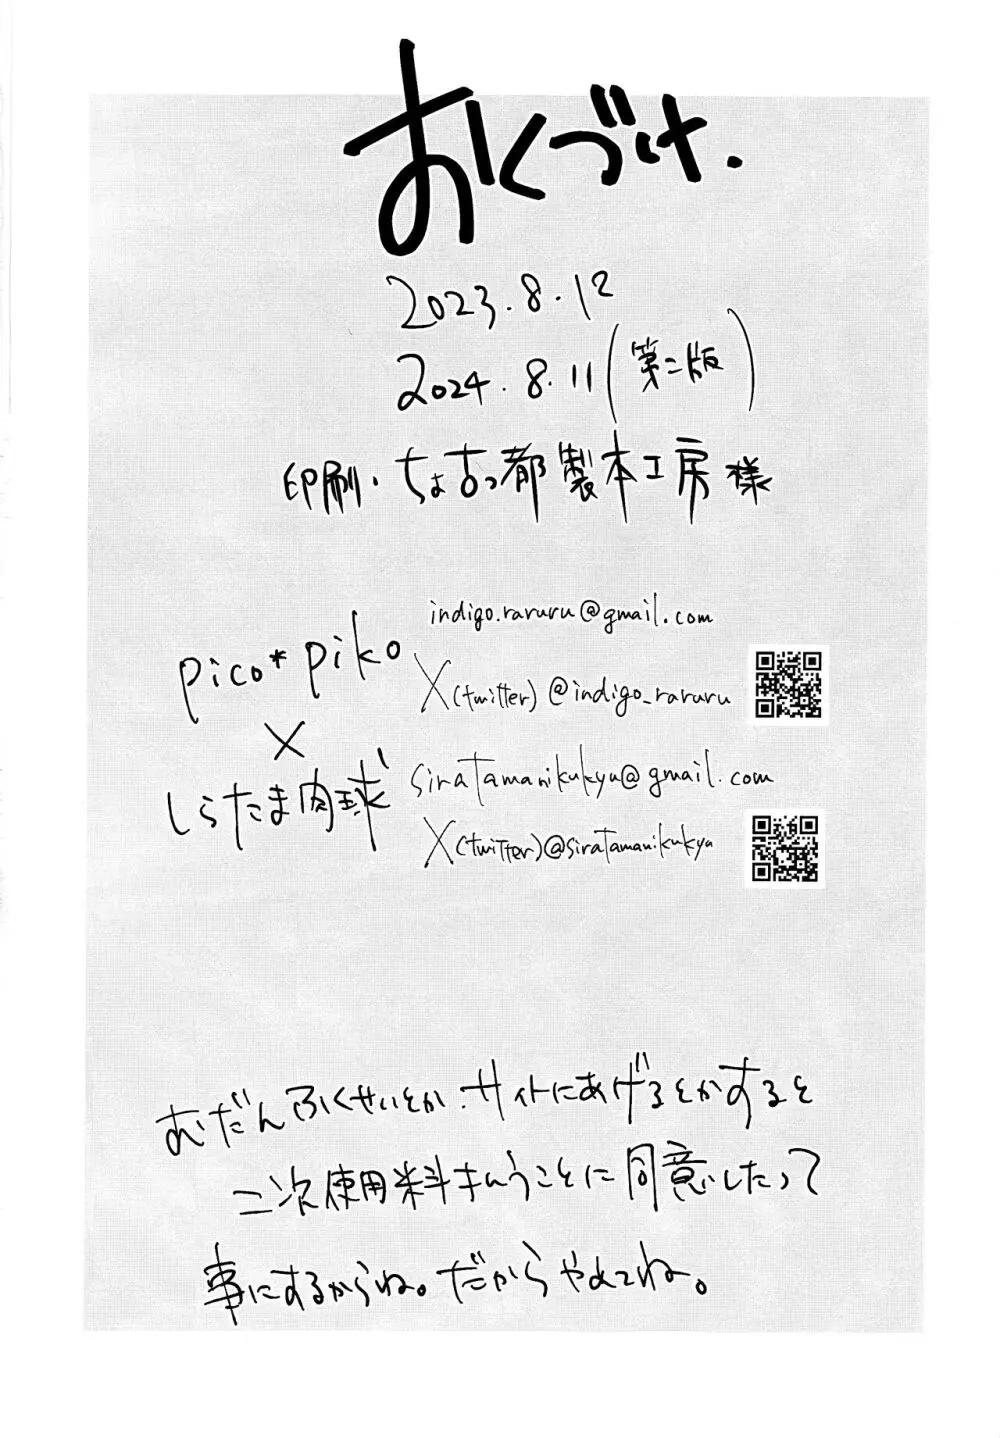 おくづけ.
2023.8.12
2024.8.11(第二版)
印刷・ちょ古っ都製本工房様
pico*piko
indigo.raruru@gmail.com
X(twitter)@indigo_raruru
×
しらたま肉球
siratamanikukyu@gmail.com
X(twitter)@siratamanikukyu
むだんふくせいとか.サイトにあげるとかすると
二次使用料払うことに同意したって
事にするからね。だからやめてね。